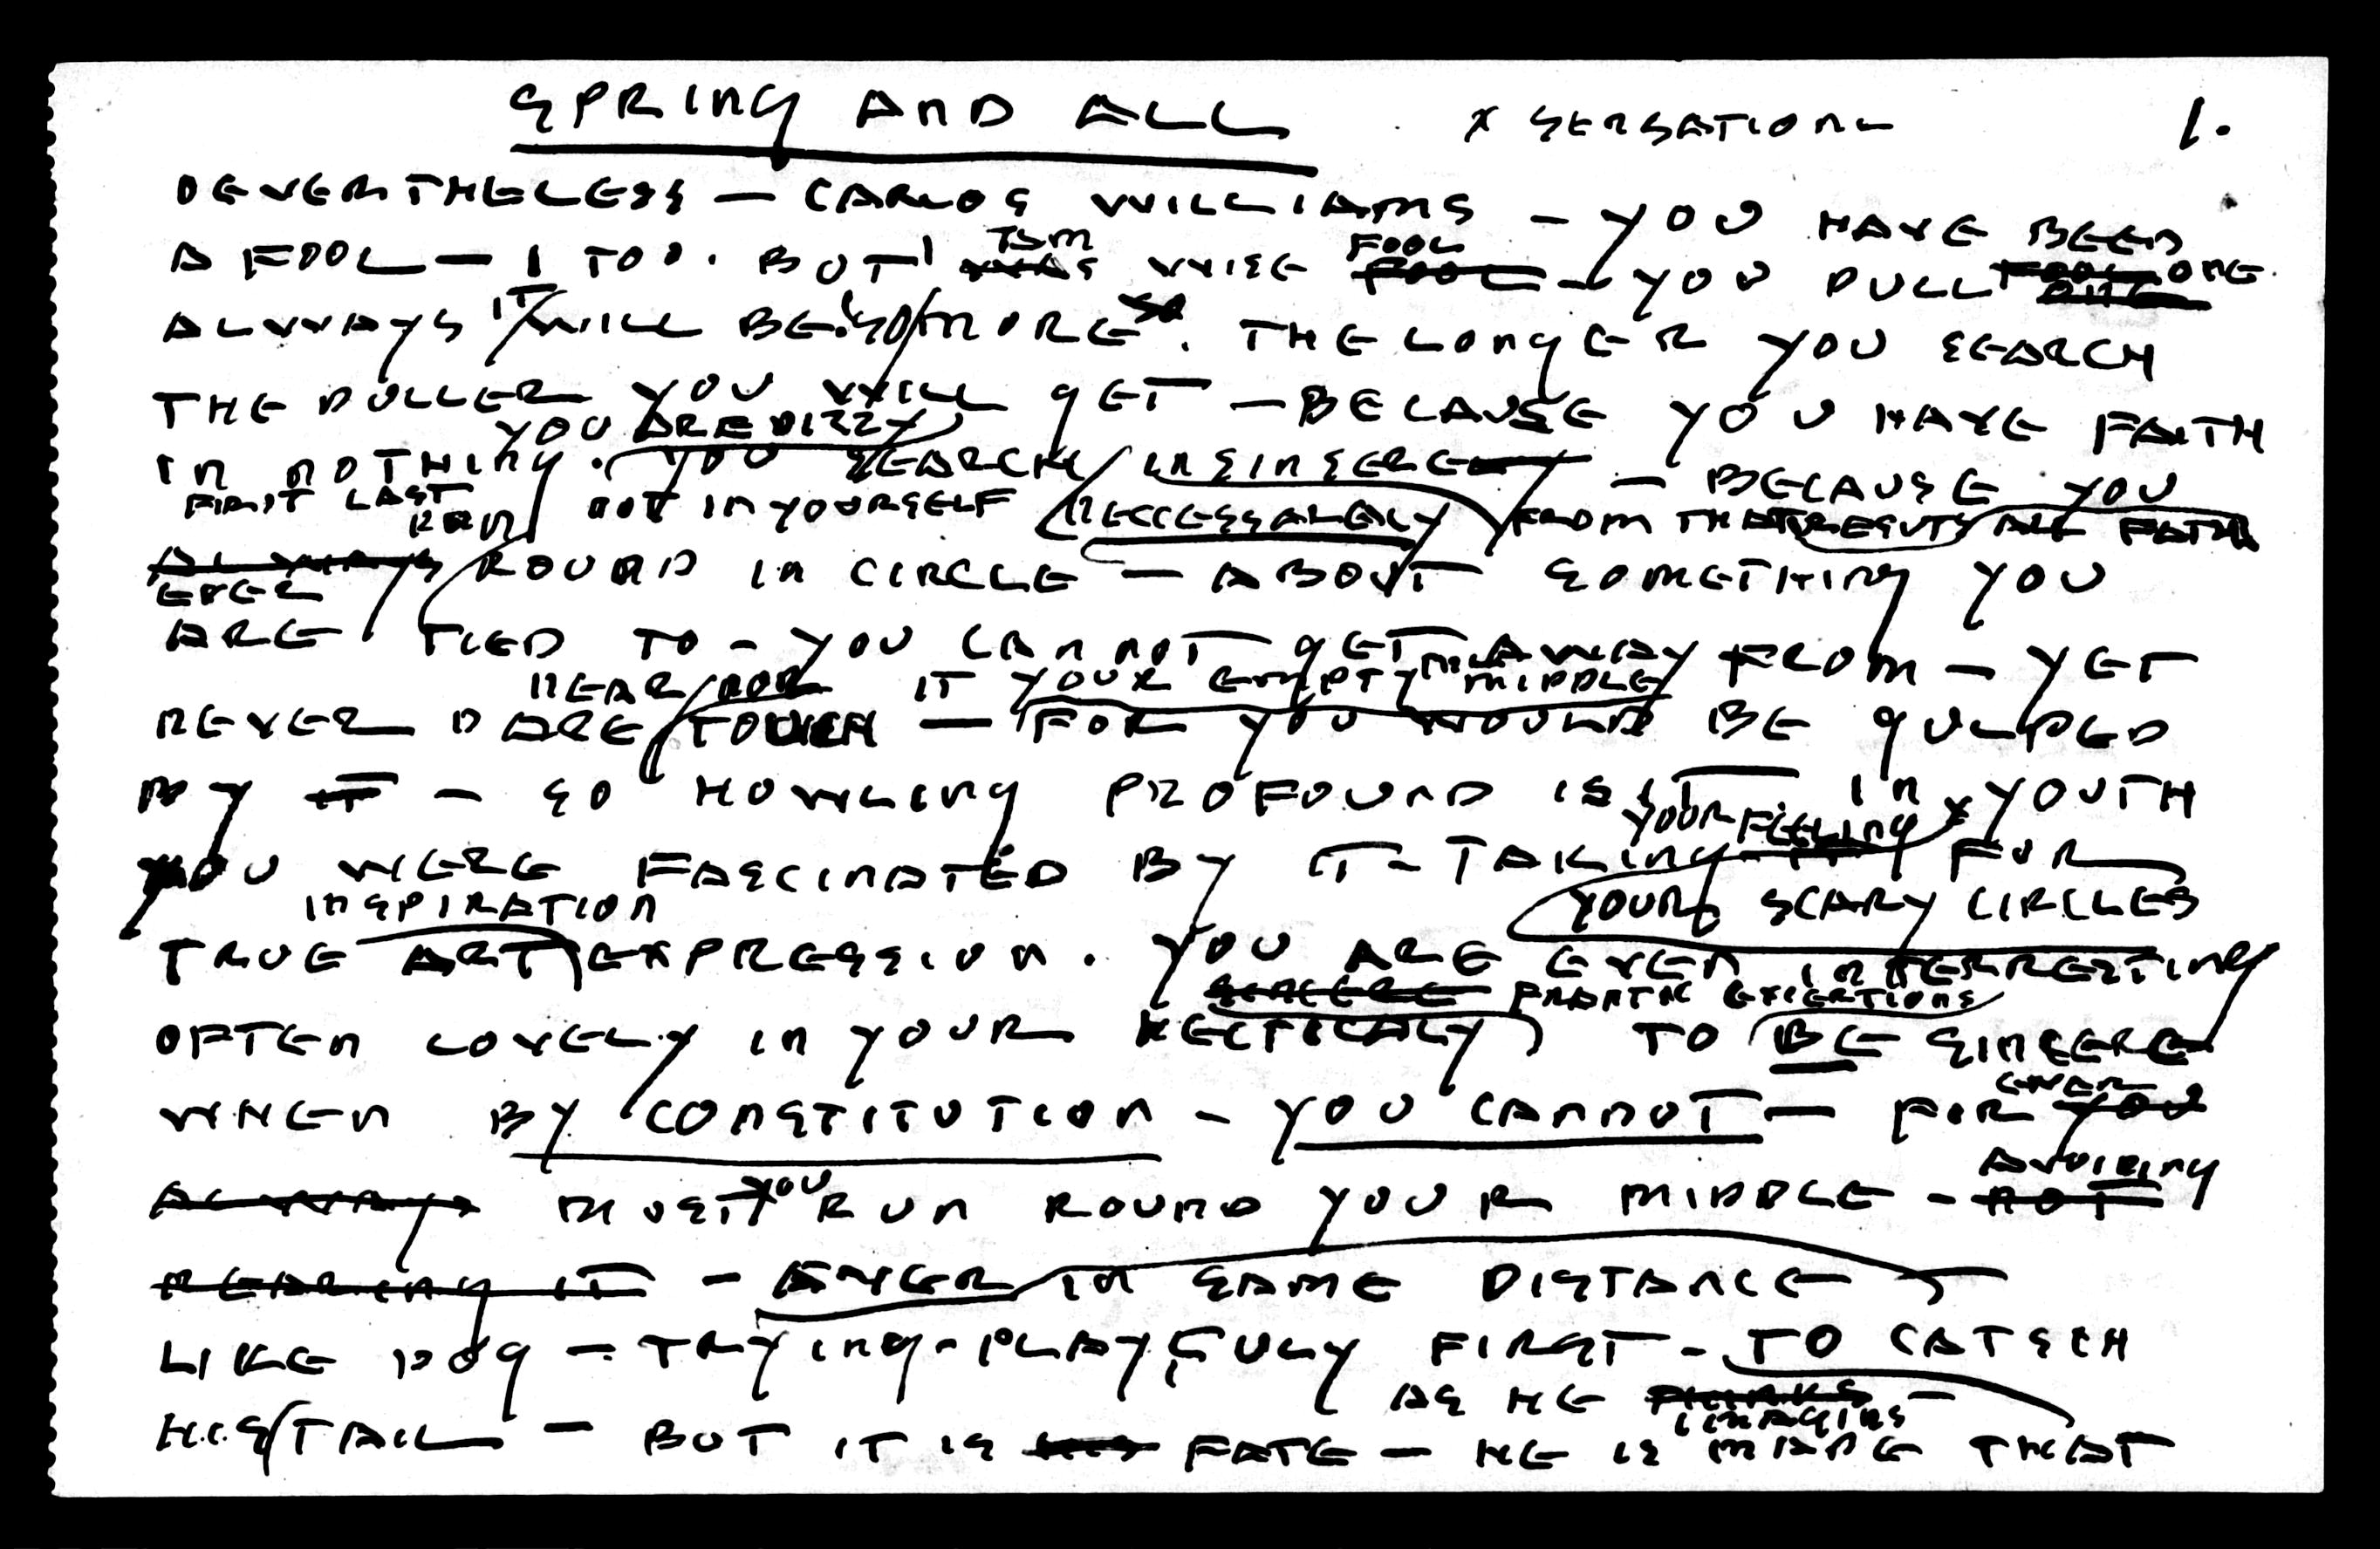 SPRING AND ALL x SENSATION 1.
NEVERTHELESS — CARLOS WILLIAMS — YOU HAVE BEEN
FOOL
A FOOL — I TOO. BUT I WAS WISE FOOL — YOU DULL ONE.
IT
ALWAYS WILL BE SO MORE. THE LONGER YOU SEARCH
THE DULLER YOU WILL GET — BECAUSE YOU HAVE FAITH
YOU ARE DIZZY
IN NOTHING. YOU SEARCH INSINSERE — BECAUSE YOU
FIRST LAST NOT IN YOURSELF NECCESSARELY FROM THAT RESUTS ALL FAITH
RUN
ALWAYS ROUND IN CIRCLE — ABOUT SOMETHING YOU
EVER
ARE TIED TO — YOU CANNOT GET AWAY FROM — YET
NEAR NOR IT YOUR EMPTY MIDDLE
NEVER DARE TOUCH — FOR YOU WOULD BE GULPED
BY IT — SO HOWLING PROFOUND IS IT IN YOUTH
YOUR FEELING
YOU WERE FASCINATED BY IT — TAKING IT FOR
INSPIRATION YOUR SCARY CIRCLES
TRUE ART EXPRESSION. YOU ARE EVEN INTERRESTING
SINCERE FRANTIC EXCERTIONS
OFTEN LOVELY IN YOUR HECTICALY TO BE SINCERE
EVER
WHEN BY CONSTITUTION — YOU CANNOT — FOR YOU
YOU AVOIDING
ALWAYS MUST RUN ROUND YOUR MIDDLE — NOT
NEARING IT — EVER IN SAME DISTANCE —
LIKE DOG — TRYING — PLAYFULY FIRST — TO CATSCH
AS HE THINKS —
IMAGINS
HIS TAIL — BUT IT IS HIS FATE — HE IS MADE THAT